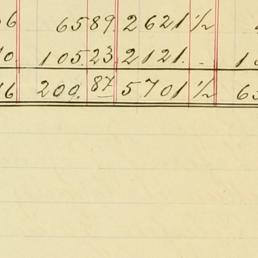 06 65 89. 2621 1/2
0. 105. 23. 2121. -
16 200. 87. 5701 1/2 63